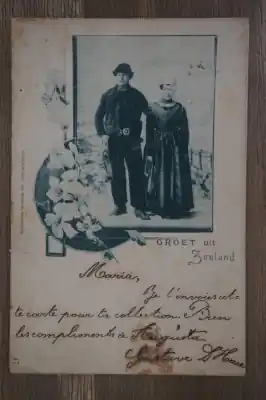 GROET uit
Zeeland
Maria,
Je t'envoie cet-
te carte pour ta collection Bien
les compliments à
Gustave D'